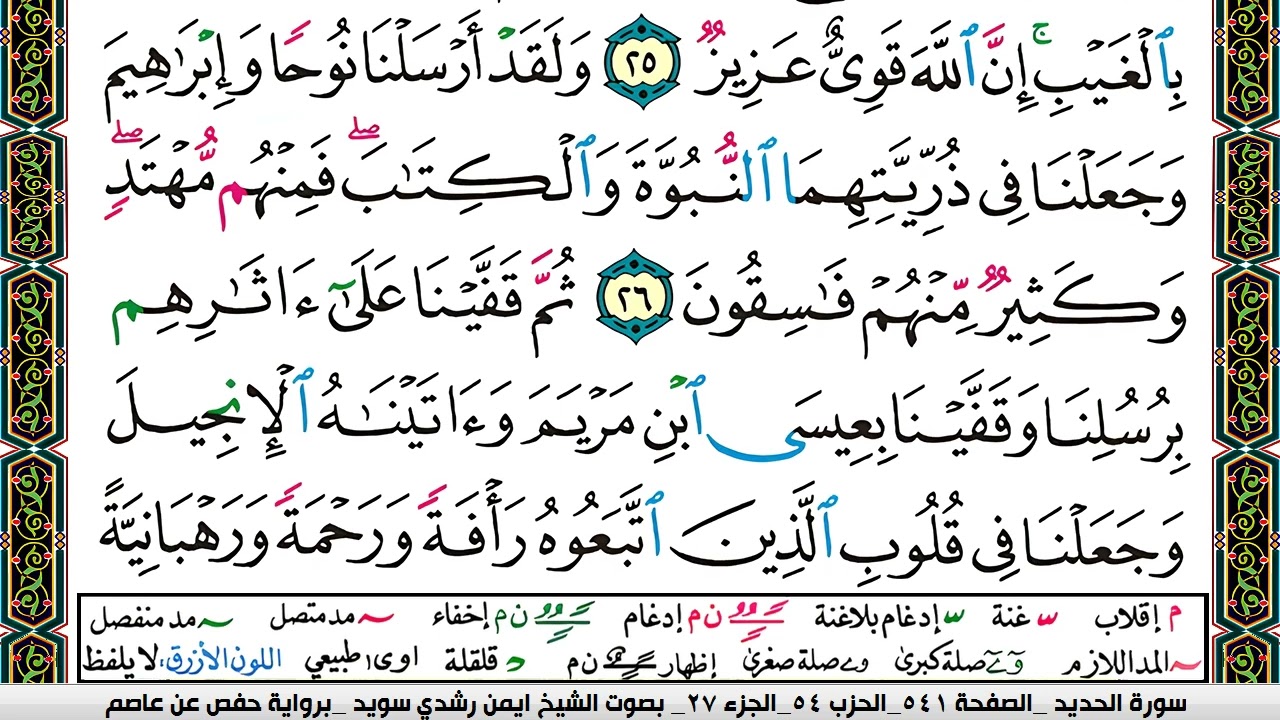 بِٱلْغَيْبِ ۚ إِنَّ ٱللَّهَ قَوِىٌّ عَزِيزٌ ٢٥ وَلَقَدْ أَرْسَلْنَا نُوحًا وَإِبْرَٰهِيمَ
وَجَعَلْنَا فِى ذُرِّيَّتِهِمَا ٱلنُّبُوَّةَ وَٱلْكِتَٰبَ ۖ فَمِنْهُم مُّهْتَدٍ ۖ
وَكَثِيرٌ مِّنْهُمْ فَٰسِقُونَ ٢٦ ثُمَّ قَفَّيْنَا عَلَىٰٓ ءَاثَٰرِهِم
بِرُسُلِنَا وَقَفَّيْنَا بِعِيسَى ٱبْنِ مَرْيَمَ وَءَاتَيْنَٰهُ ٱلْإِنجِيلَ
وَجَعَلْنَا فِى قُلُوبِ ٱلَّذِينَ ٱتَّبَعُوهُ رَأْفَةً وَرَحْمَةً وَرَهْبَانِيَّةً
م إقلاب غنة إدغام بلاغنة ن م إدغام ن م إخفاء مد متصل مد منفصل
المد اللازم صلة كبرى صلة صغرى إظهار ن م قلقلة اوى طبيعي اللون الأزرق، لا يلفظ
سورة الحديد _الصفحة ٥٤١_الحزب ٥٤_الجزء ٢٧_ بصوت الشيخ ايمن رشدي سويد _برواية حفص عن عاصم